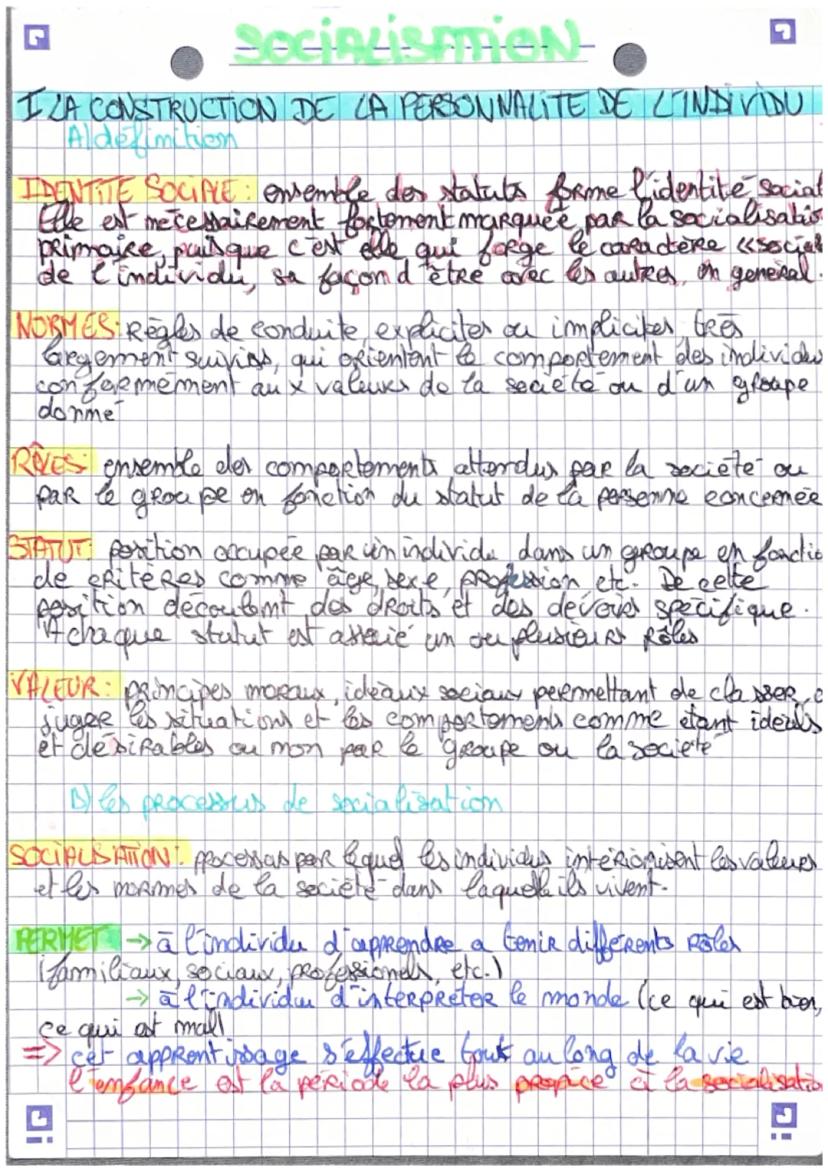 SOCIALISATION
I LA CONSTRUCTION DE LA PERSONNALITE DE L'INDIVIDU
A) définition
IDENTITE SOCIALE : ensemble des statuts forme l'identité social
Elle est nécessairement fortement marquée par la socialisatio
primaire, puisque c'est elle qui forge le caractère «social
de l'individu, sa façon d'être avec les autres, en général.
NORMES: Règles de conduite, explicites ou implicites, très
largement suivies, qui orientent le comportement des individus
conformément aux valeurs de la société ou d'un groupe
donné
RÔLES: ensemble des comportements attendus par la société ou
par le groupe en fonction du statut de la personne concernée
STATUT: position occupée par un individu dans un groupe en fonctio
de critères comme âge, sexe, profession etc. De cette
position découlant des droits et des devoirs spécifique.
A chaque statut est associé un ou plusieurs rôles
VALEUR: principes moraux, idéaux sociaux permettant de classer, e
juger les situations et les comportements comme étant idéals
et désirables ou non par le groupe ou la société
B) les processus de socialisation
SOCIALISATION: processus par lequel les individus intériorisent les valeurs
et les normes de la société dans laquelle ils vivent.
PERMET → à l'individu d'apprendre a tenir différents rôles
(familiaux, sociaux, professionels, etc.)
→ à l'individu d'interpréter le monde (ce qui est bien,
ce qui est mal)
=> cet apprentissage s'effectue tout au long de la vie
l'enfance est la période la plus propice à la socialisatio